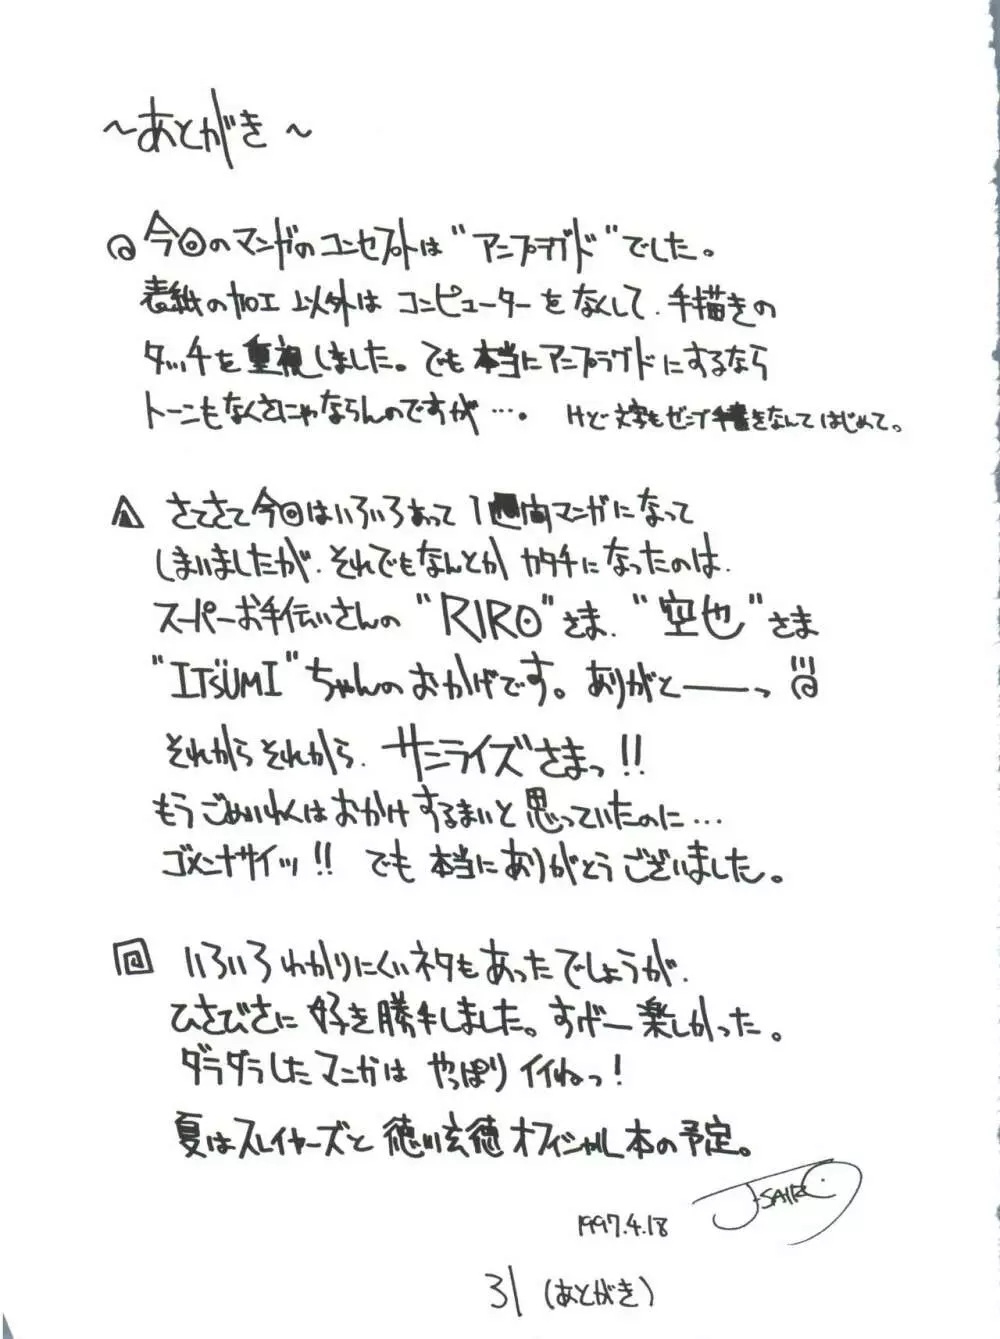 ～あとがき～
今回のマンガのコンセプトは“アンプラグド”でした。
表紙の加工以外はコンピューターをなくして、手描きの
タッチを重視しました。でも本当にアンプラグドにするなら
トーンもなくさにゃならんのですが…。 けど文字もゼンブ手書きなんてはじめて。
さてさて今回はいろいろあって1週間マンガになって
しまいましたが、それでもなんとかカタチになったのは、
スーパーお手伝いさんの“RIRO”さま、“空也”さま
“ITSUMI”ちゃんのおかげです。ありがと――っ!!!
それからそれから、サミーライズ"さまっ!!
もうごめいわくはおかけするまいと思っていたのに…
ゴメンナサイッ!! でも本当にありがとうございました。
いろいろわかりにくいネタもあったでしょうが、
ひさびさに好き勝手しました。すげー楽しかった。
ダラダラしたマンガはやっぱりイイねっ!
夏はスレイヤーズと徳川玄徳オフィシャル本の予定。
1997.4.18 J-SAIRO
31 (あとがき)